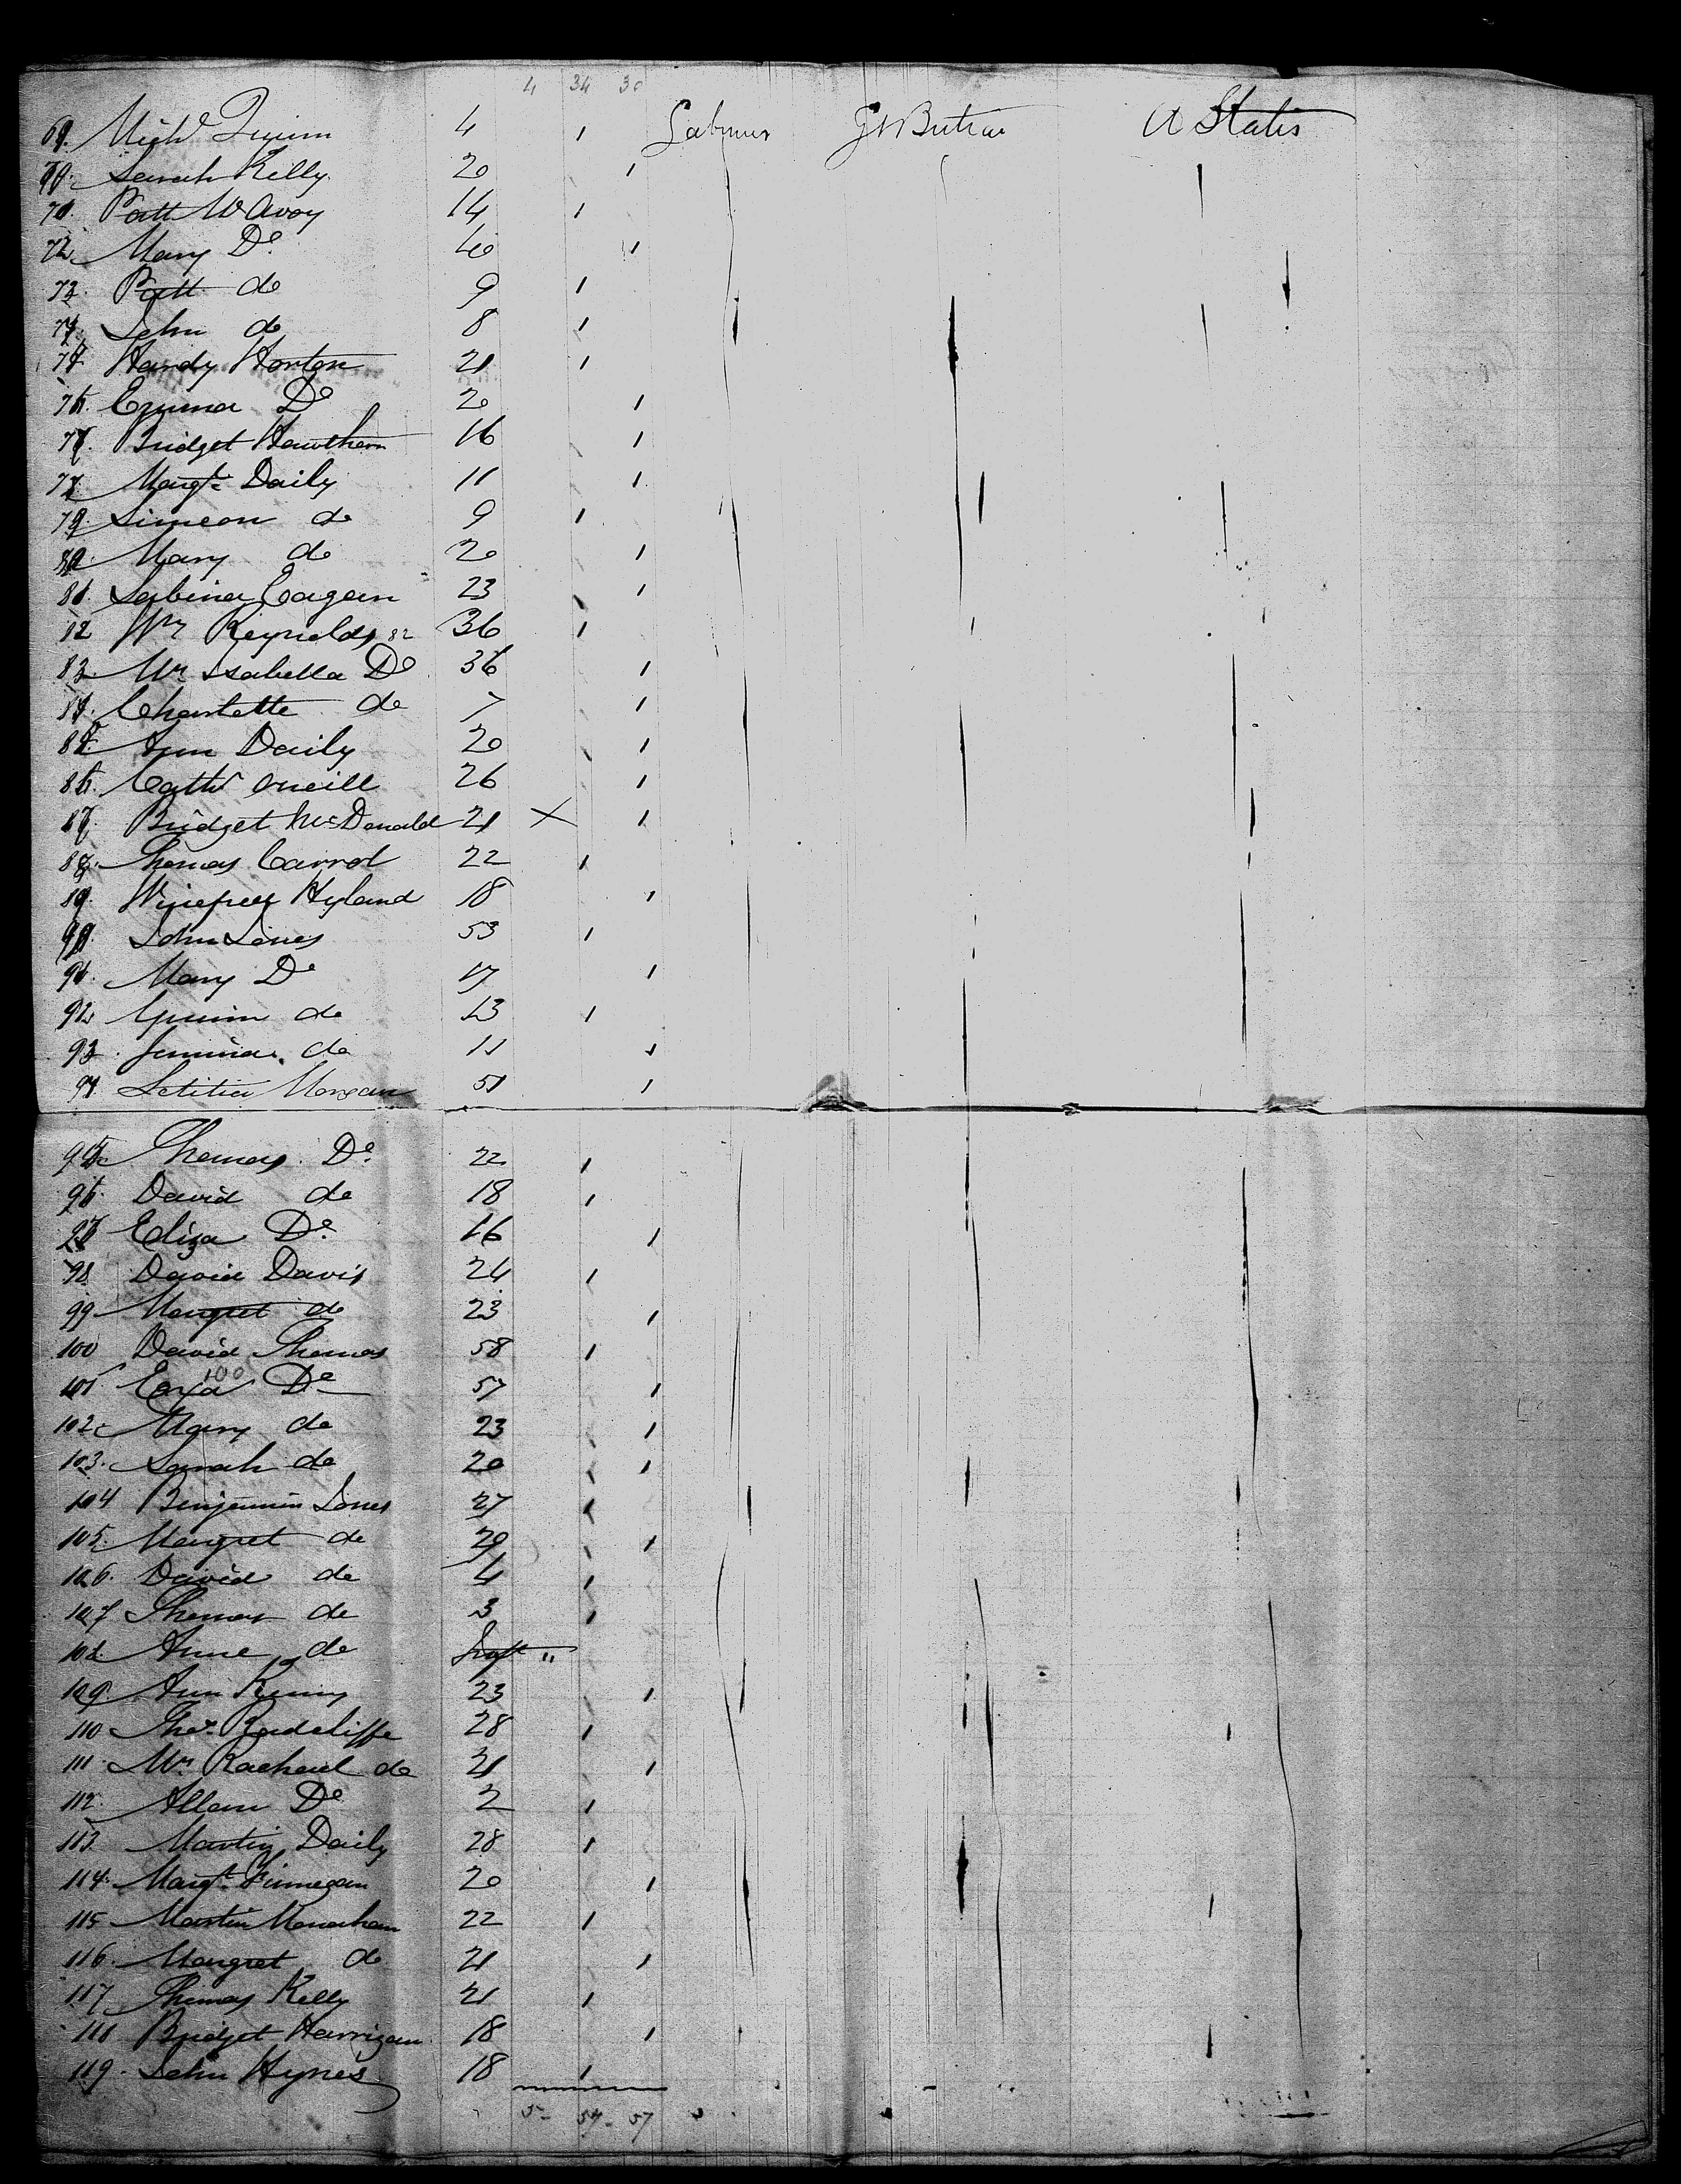 4 34 30
69. Michl Quinn 4 ı Labourer Gt Britain U States
70. Sarah Kelly 20 ı
71. Patt McAvoy 14 ı
72. Mary Do 40 ı
73. Patt do 9 ı
74. John do 8 ı
75. Hardy Horton 21 ı
76. Emma Do 20 ı
77. Bridget Hawthorn 16 ı
78. Margt Daily 11 ı
79. Simeon do 9 ı
80. Mary do 20 ı
81. Sabina Eagan 23 ı
82 Wm Reynolds 82 36 ı
83. Mrs Isabella Do 36 ı
84. Charlotte do 7 ı
85. Ann Daily 20 ı
86. Cathr Oneill 26 ı
87. Bridget McDonald 21 X ı
88. Thomas Carrol 22 ı
89. Hyland 18 ı
90. John Jones 53 ı
91. Mary Do 17 ı
92. do 13 ı
93. Jemima do 11 ı
94. Letitia Morgan 51 ı
95. Thomas Do 22 ı
96. David do 18 ı
97. Eliza Do 16 ı
98 David Davis 24 ı
99. Margret do 23 ı
100 David Thomas 58 ı
101 100 Do 57 ı
102. Mary do 23 ı
103. Sarah do 20 ı
104 Benjamin Jones 27 ı
105. Margret do 29 ı
106. David do 4 ı
107 Thomas do 3 ı
108. Anne do Inft "
109. Ann Kenny 23 ı
110. Thos Radcliffe 28 ı
111. Mrs Racheal do 21 ı
112. Allan Do 2 ı
113. Martin Daily 28 ı
114. Margt Finnegan 20 ı
115 Martin Monahan 22 ı
116. Margret do 21 ı
117 Thomas Kelly 21 ı
118 Bridget Harrigan 18 ı
119. John Hynes 18 ı
5 - 54 - 57